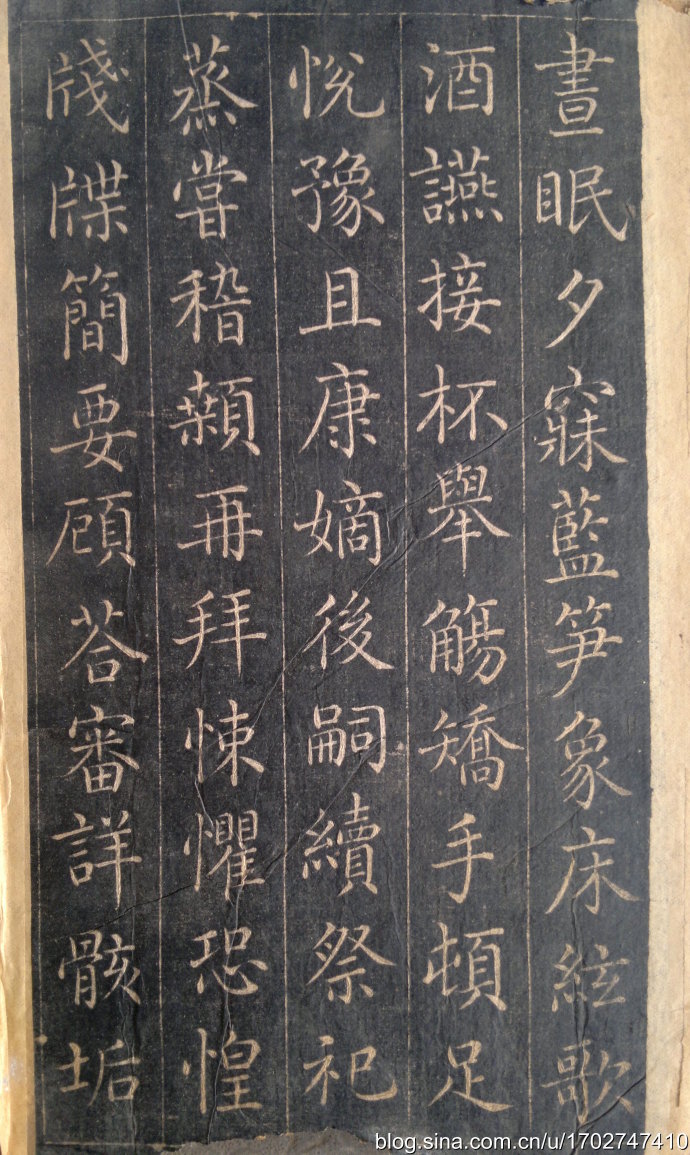 晝眠夕寐藍笋象床絃歌
酒讌接杯舉觴矯手頓足
悅豫且康嫡後嗣續祭祀
蒸嘗稽顙再拜悚懼恐惶
牋牒簡要顧荅審詳骸垢
blog.sina.com.cn/u/1702747410